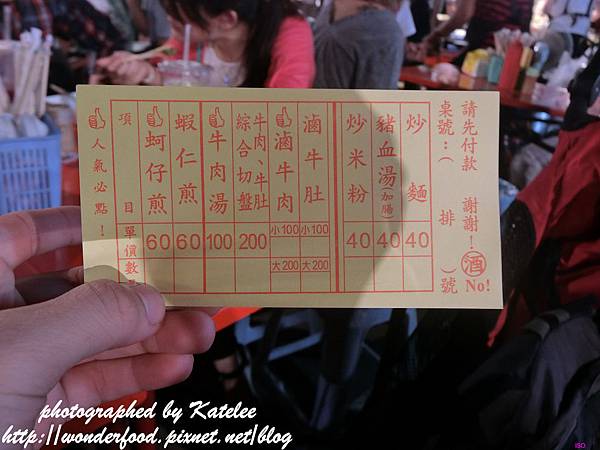 請先付款 謝謝！
桌號：（ 排 ）號
酒 No!
炒麵 40
豬血湯(加腸) 40
炒米粉 40
滷牛肚 小100 大200
滷牛肉 小100 大200
牛肉、牛肚綜合切盤 200
牛肉湯 100
蝦仁煎 60
蚵仔煎 60
項目 單價 數
人氣必點！
photographed by Katelee
http://wonderfood.pixnet.net/blog